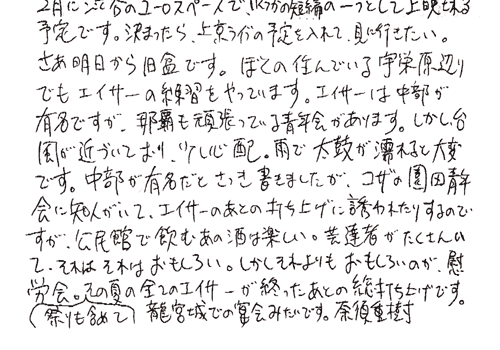 2月に渋谷のユーロスペースで、いくつかの短編の一つとして上映される
予定です。決まったら、上京ライブの予定を入れて、見に行きたい。
さあ明日から旧盆です。ぼくの住んでいる宇栄原辺り
でもエイサーの練習をやっています。エイサーは中部が
有名ですが、那覇も頑張っている青年会があります。しかし台
風が近づいており、少し心配。雨で太鼓が濡れると大変
です。中部が有名だとさっき書きましたが、コザの園田青年
会に知人がいて、エイサーのあとの打ち上げに誘われたりするので
すが、公民館で飲むあの酒は楽しい。芸達者がたくさんい
て、それはそれはおもしろい。しかしそれよりもおもしろいのが、慰
労会。その夏の全てのエイサーが終ったあとの総打ち上げです。
(祭りも含めて) 龍宮城での宴会みたいです。奈須重樹